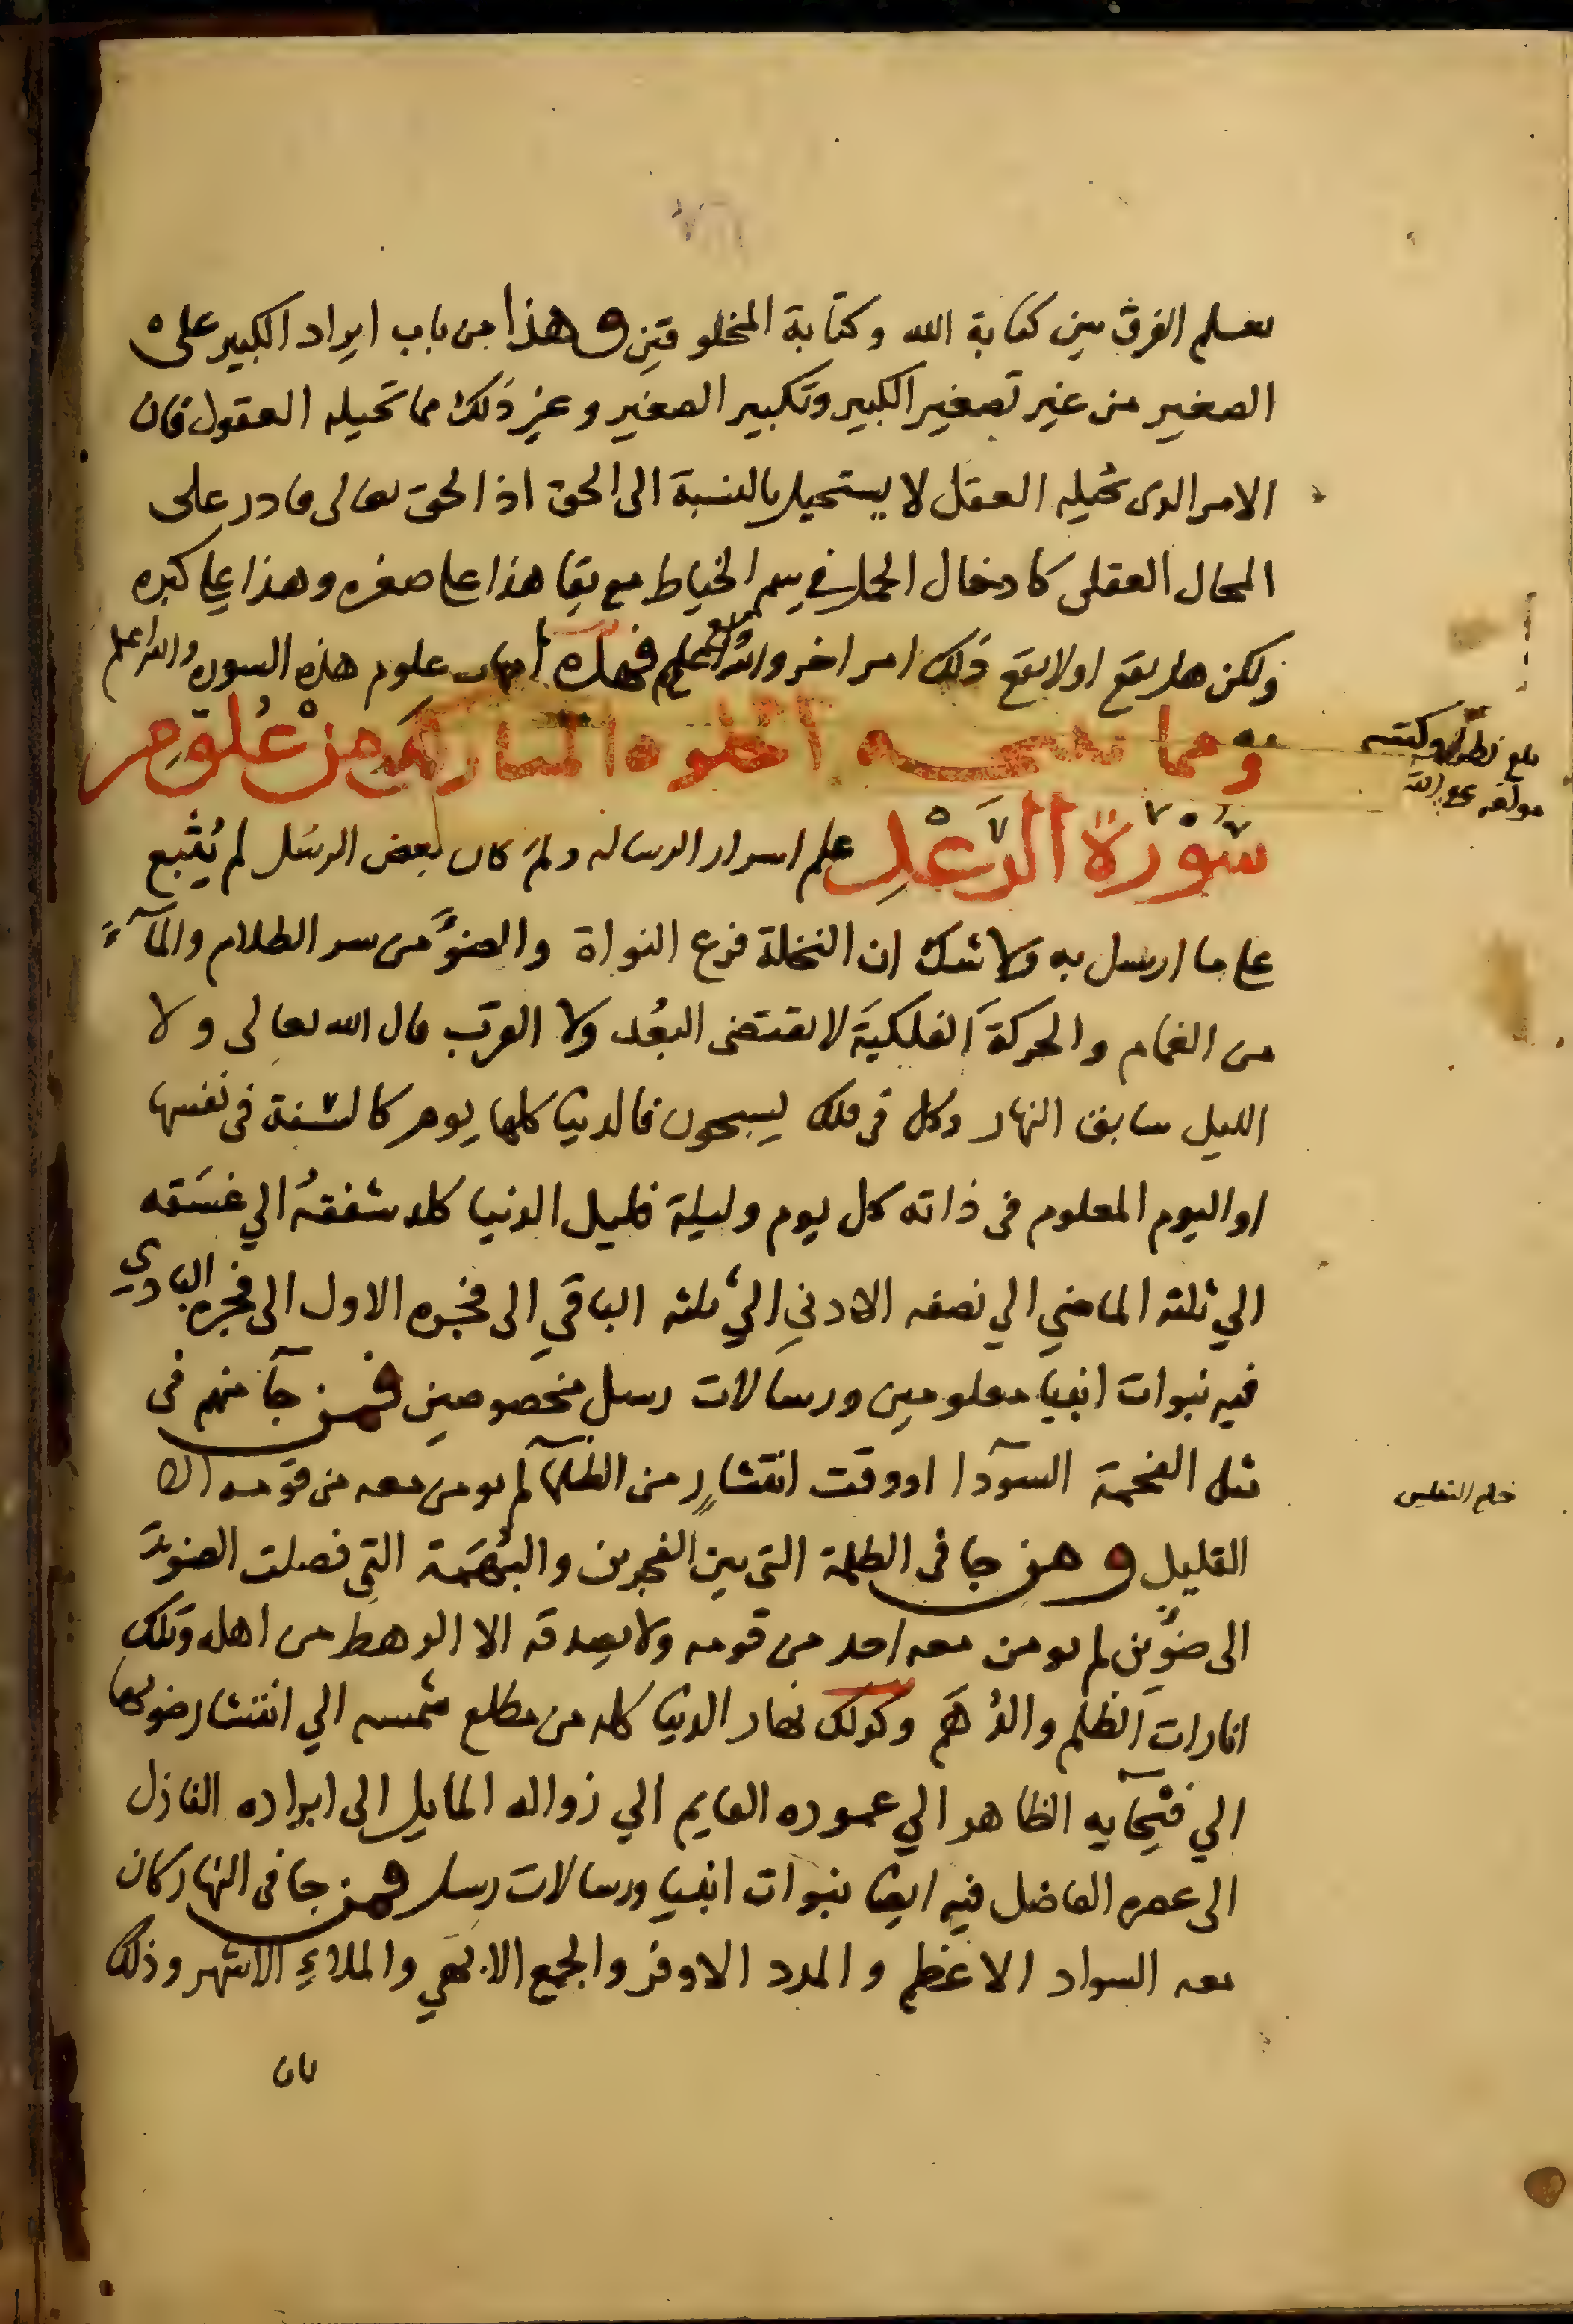 يعلم الفرق بين كتابة الله وكتابة المخلوقين وهذا من باب ايراد الكبير على
الصغير من غير تصغير الكبير وتكبير الصغير وغير ذلك مما تحيله العقول فان
الامر الذى تحيله العقل لا يستحيل بالنسبة الى الحق اذ الحق تعالى قادر على
المحال العقلى كادخال الجمل في سم الخياط مع بقا هذا على صغره وهذا على كبره
ولكن هل يقع اولا يقع ذلك امر اخر والله اعلم فهذه امهات علوم هذه السورة والله اعلم
ومما الخلوه المباركه من علوم
سورة الرعد علم اسرار الرساله ولم كان بعض الرسل لم يتبع
على ما ارسل به ولا شك ان النخلة فرع النواة والضوء من سر الظلام والمآء
من الغمام والحركة الفلكية لا تقتضى البعد ولا القرب قال الله تعالى ولا
الليل سابق النهار وكل فى فلك يسبحون فالدنيا كلها يوم كالسنة فى نفسها
او اليوم المعلوم فى ذاته كل يوم وليلة فليل الدنيا كله شفقه الي غسقه
الي ثلثه الماضي الي نصفه الادني الي ثلثه الباقي الى فجره الاول الى فجره البادي
فيه نبوات انبيا معلومين ورسالات رسل مخصوصين فمن جآ منهم فى
مثل الفحمة السودآ او وقت انتشار من الظلمآ لم يومن معه من قومه الا
القليل ومن جا فى الظلمة التى بين الفجرين والبهمة التى فصلت الضوء
الى ضوئين لم يومن معه احد من قومه ولا يصدقه الا الرهط من اهله وتلك
امارات الظلم والدهم وكذلك نهار الدنيا كله من مطلع شمسه الي انتشار ضوئها
الي ضحآيه الظاهر الي عموده القايم الي زواله المايل الى ابراده النازل
الى عصره الفاضل فيه ايضا نبوات انبيا ورسالات رسل فمن جا فى النهار كان
معه السواد الاعظم والمدد الاوفر والجمع الابهي والملاء الاشهر وذلك
بان
بلغ نظرا وكتبه
مولفه عفى الله